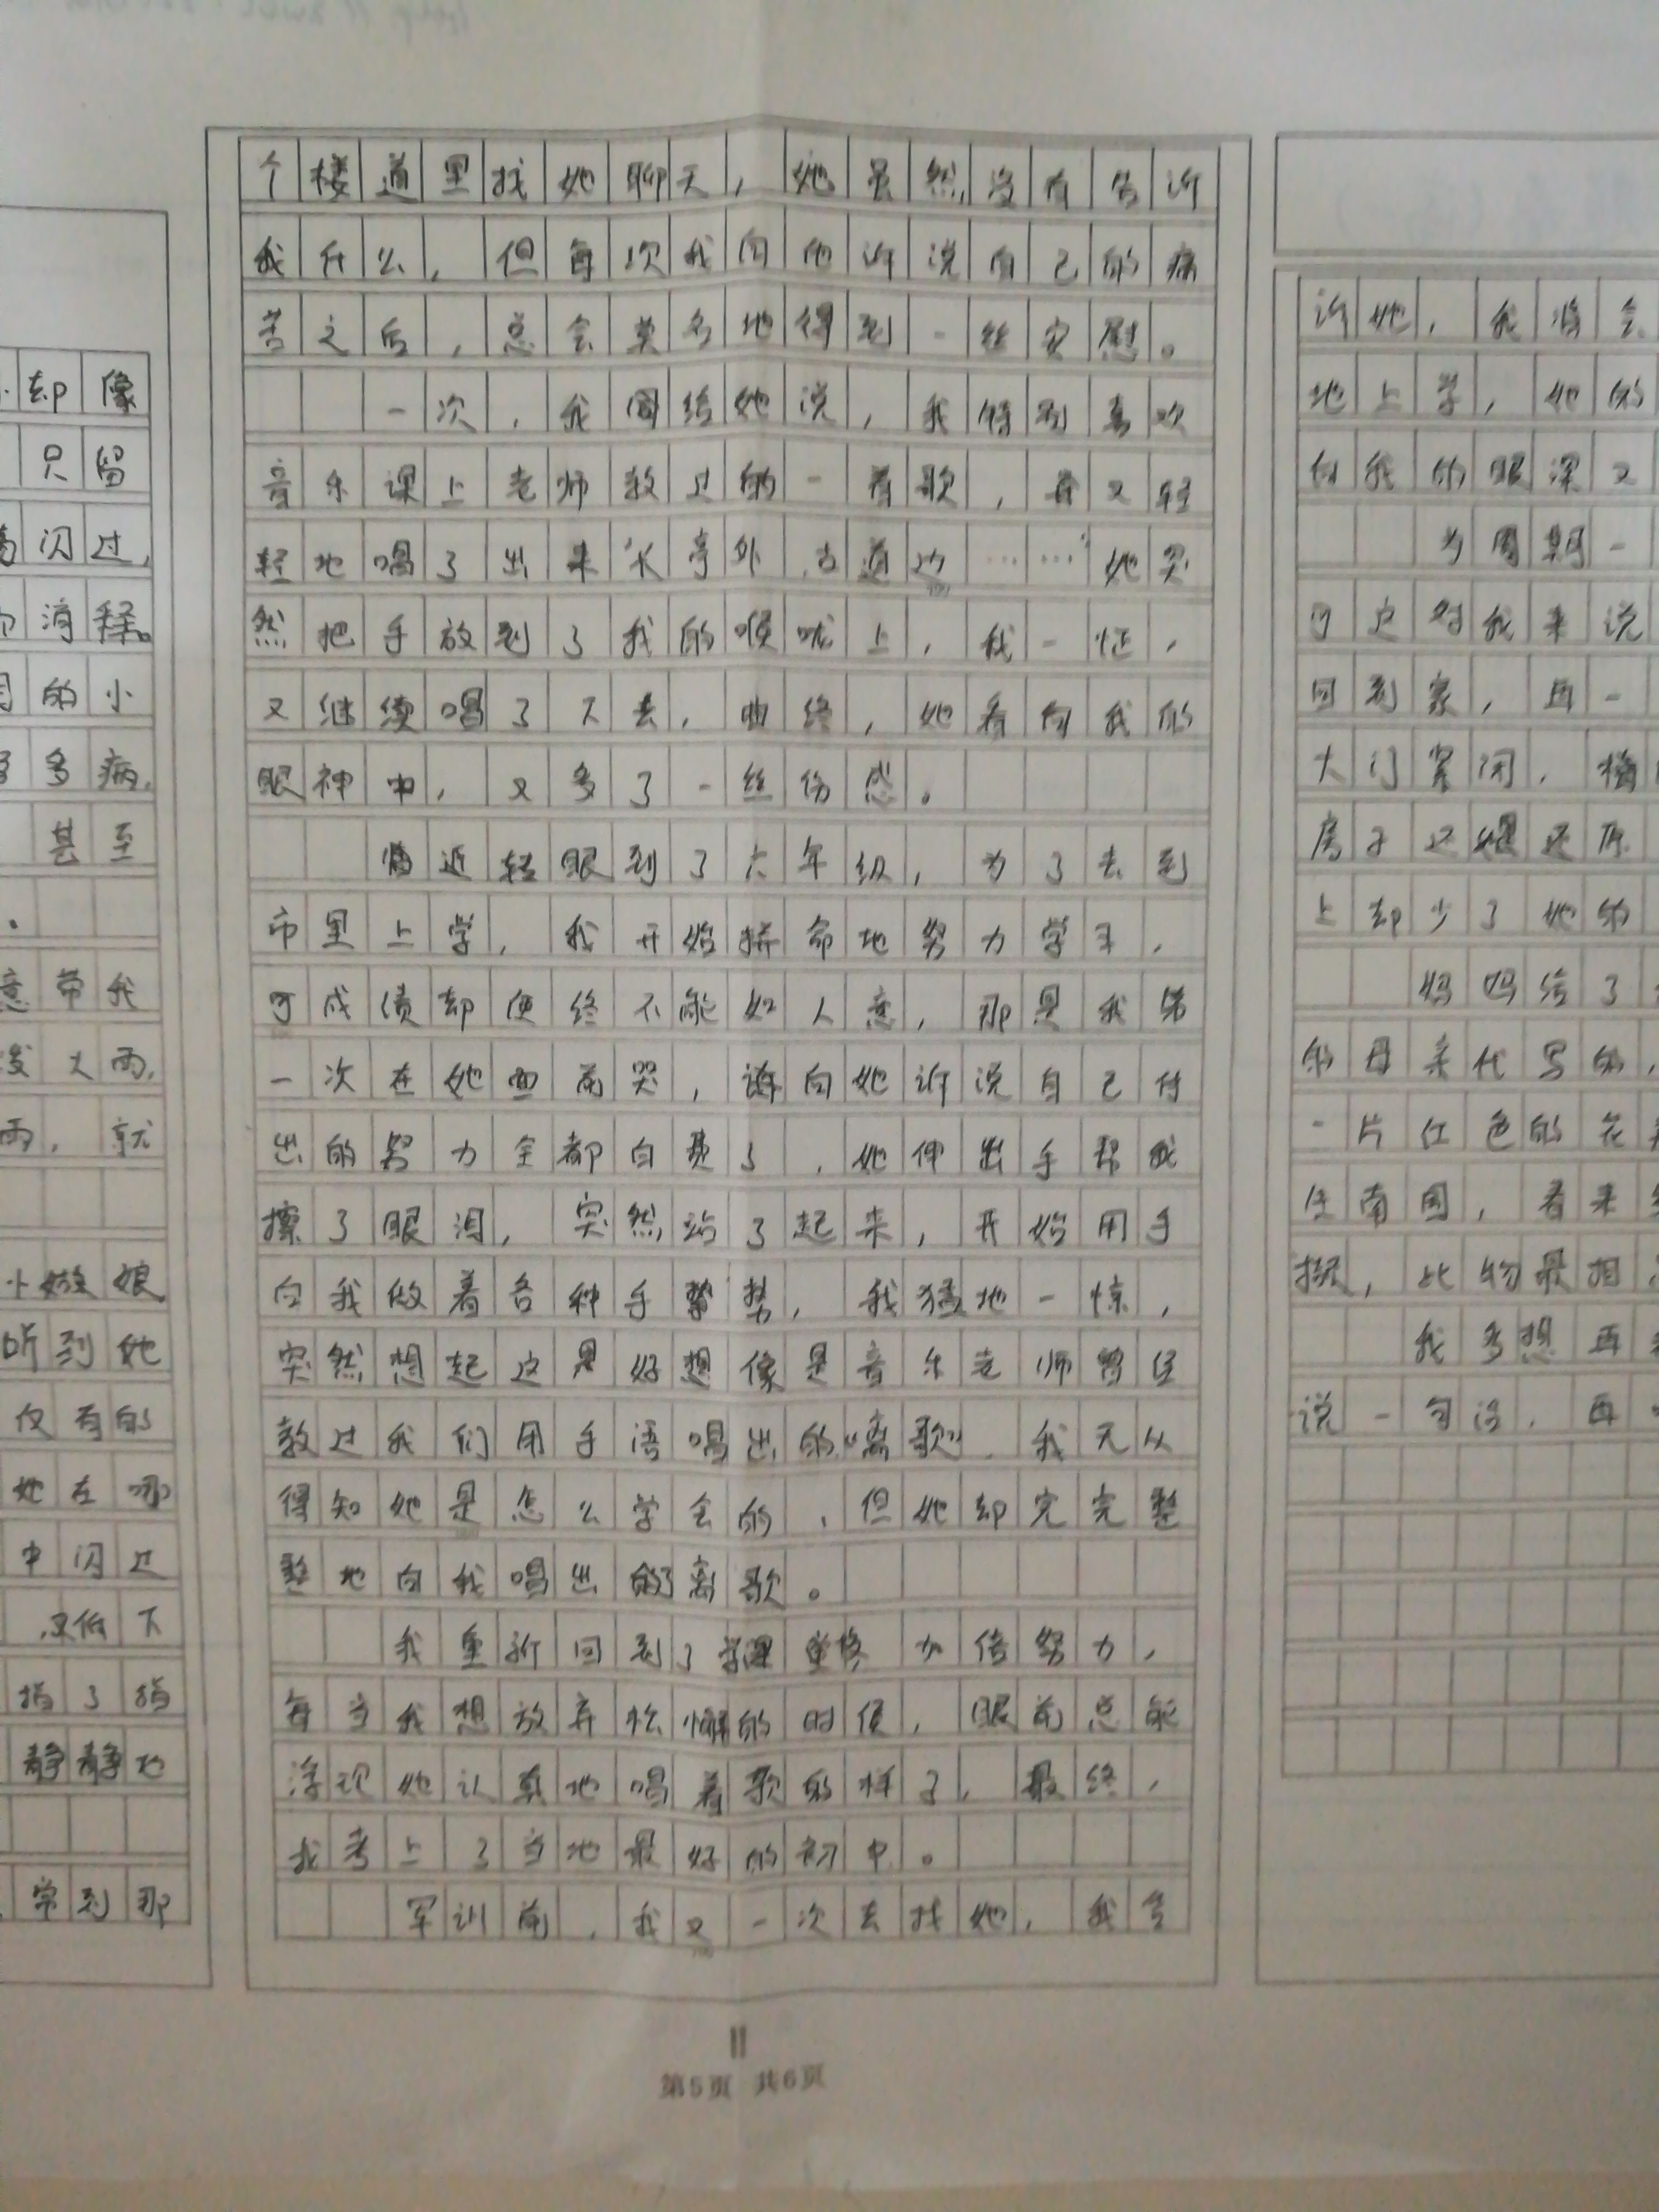 却像
只留
闪过，
消释。
的小
多病，
甚至
。
意带我
大雨，
雨，就
娘
听到她
仅有的
她在哪
中闪过
又低下
指了指
静静地
常到那
个楼道里找她聊天，她虽然没有告诉
我什么，但每次我向他诉说自己的痛
苦之后，总会莫名地得到一丝安慰。
一次，我给她说，我特别喜欢
音乐课上老师教过的一首歌，并又轻
轻地唱了出来"长亭外，古道边……"她突
然把手放到了我的喉咙上，我一怔，
又继续唱了下去，曲终，她看向我的
眼神中，又多了一丝伤感。
转眼到了六年级，为了去到
市里上学，我开始拼命地努力学习，
可成绩却使终不能如人意，那是我第
一次在她面前哭，向她诉说自己付
出的努力全都白费了，她伸出手帮我
擦了眼泪，突然站了起来，开始用手
向我做着各种手势，我猛地一惊，
突然想起这是好想像是音乐老师曾经
教过我们用手语唱出的"离歌"，我无从
得知她是怎么学会的，但她却完完整
整地向我唱出了离歌。
我重新回到了学校，加倍努力，
每当我想放弃松懈的时候，眼前总能
浮现她认真地唱着歌的样子，最终，
我考上了当地最好的初中。
军训前，我又一次去找她，我告
第5页 共6页
诉她，我将会
地上学，她的
向我的眼深又
当周期一
可这对我来说
回到家，再一
大门紧闭，
房子还是还原
上却少了她的
妈妈给了
的母亲代写的，
一片红色的花
生南国，春来
撷，此物最相
我多想再
说一句话，再